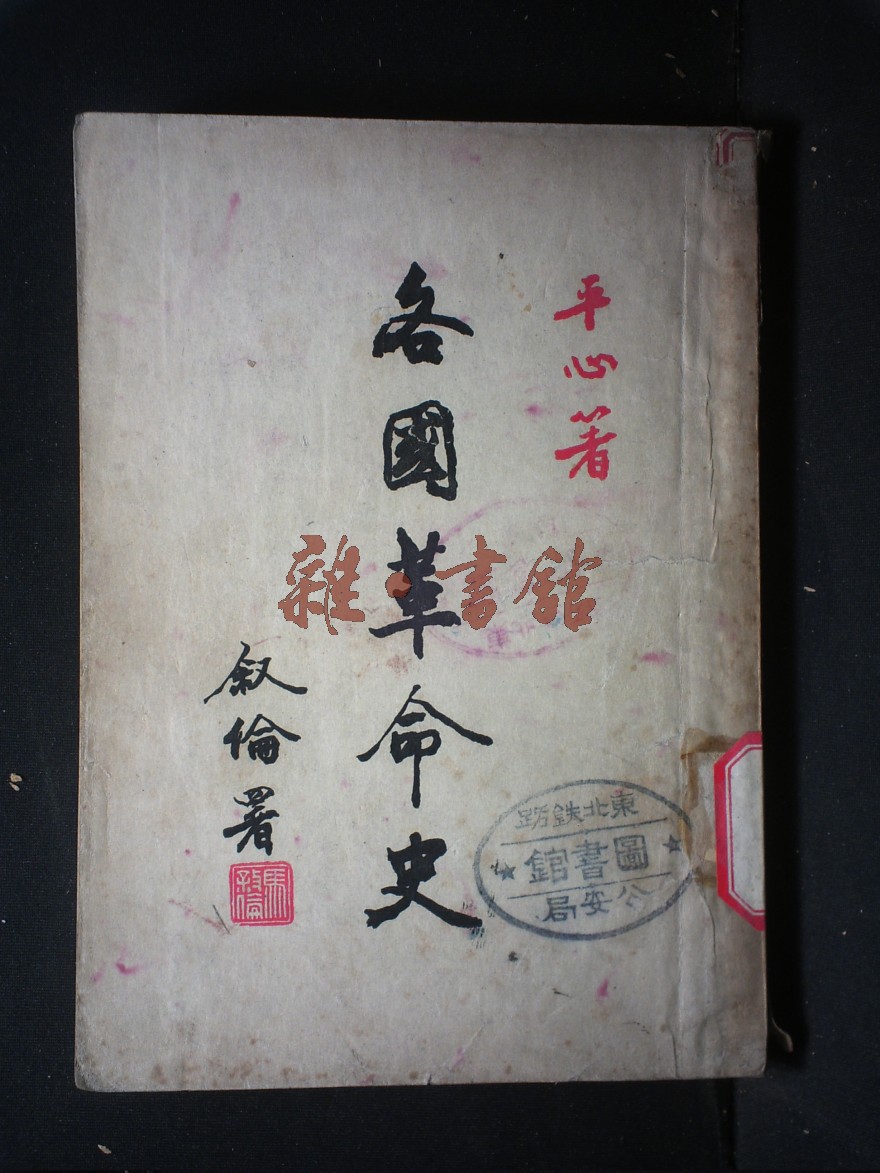 平心著
各國革命史
叙倫署
雜·書舘
東北鉄路
圖書舘
公安局